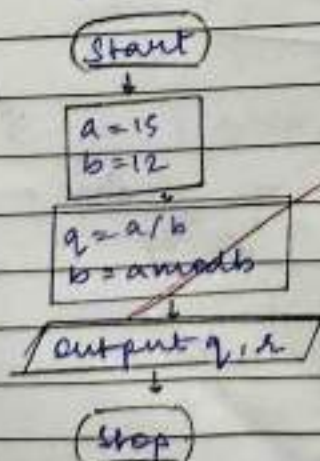 Start
a = 15
b = 12
q = a / b
b = a mod b
output q, r
Stop